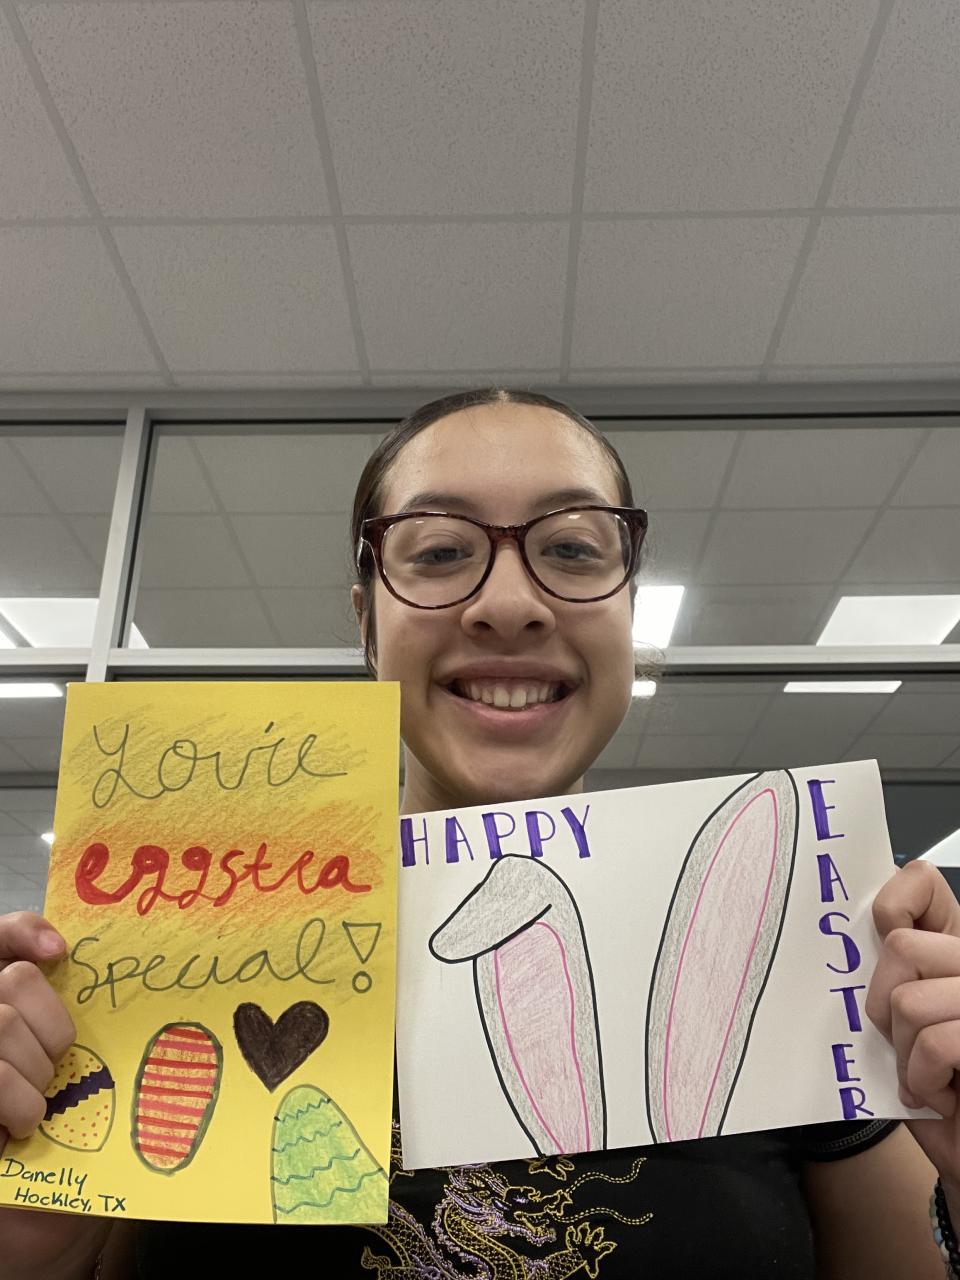 Lovie
eggstra
Special!
Danelly
Hockley, TX
HAPPY
EASTER